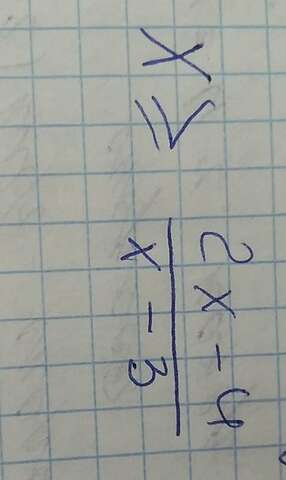 x ≥ \frac{2x-4}{x-3}